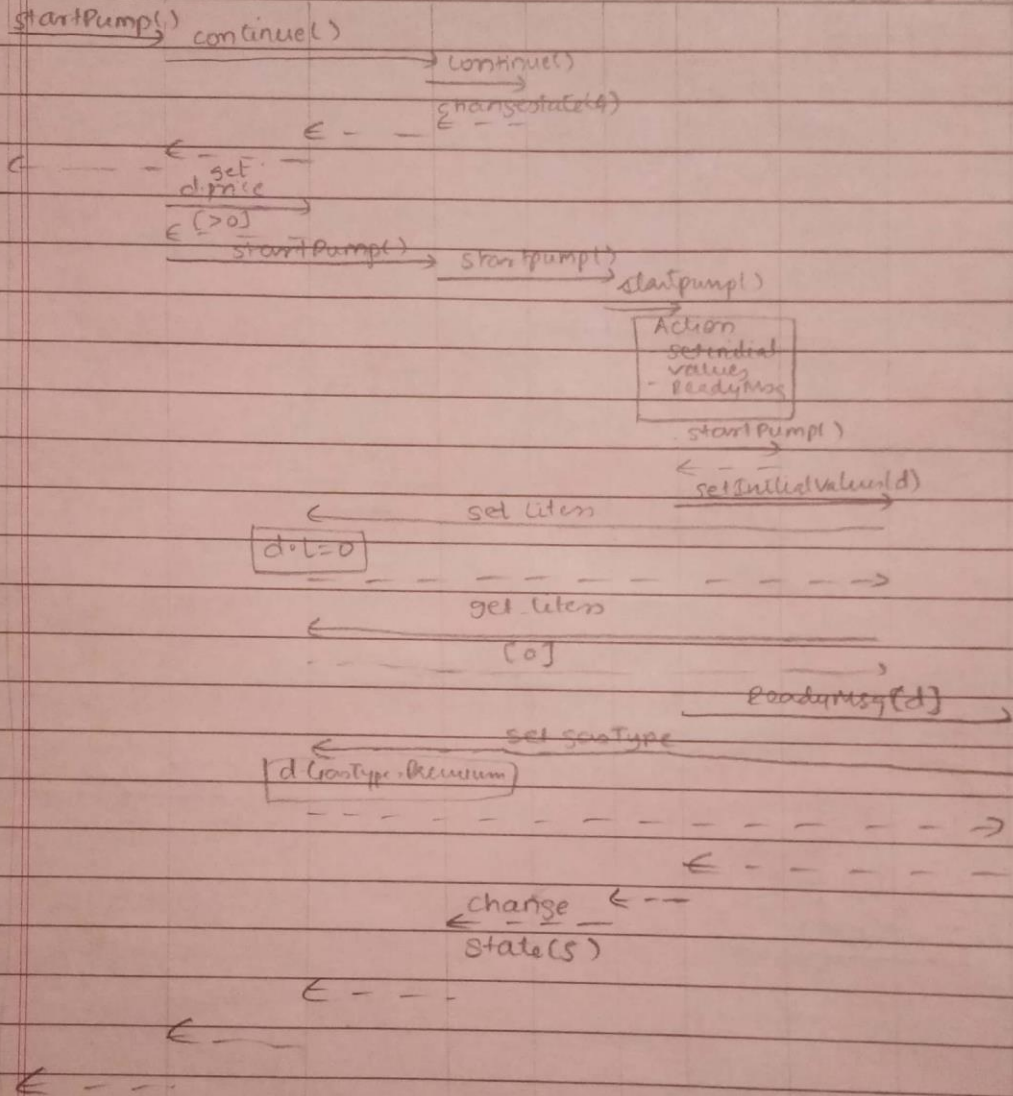 startPump()
continue()
continue()
changestate(4)
get
d.price
[>0]
startPump()
startpump()
startpump()
Action
- setinitial
values
- ReadyMsg
startPump()
setInitialValues(d)
set Liters
d.L=0
get liters
[0]
ReadyMsg[d]
set gasType
d.GasType.Premium
change
state(5)